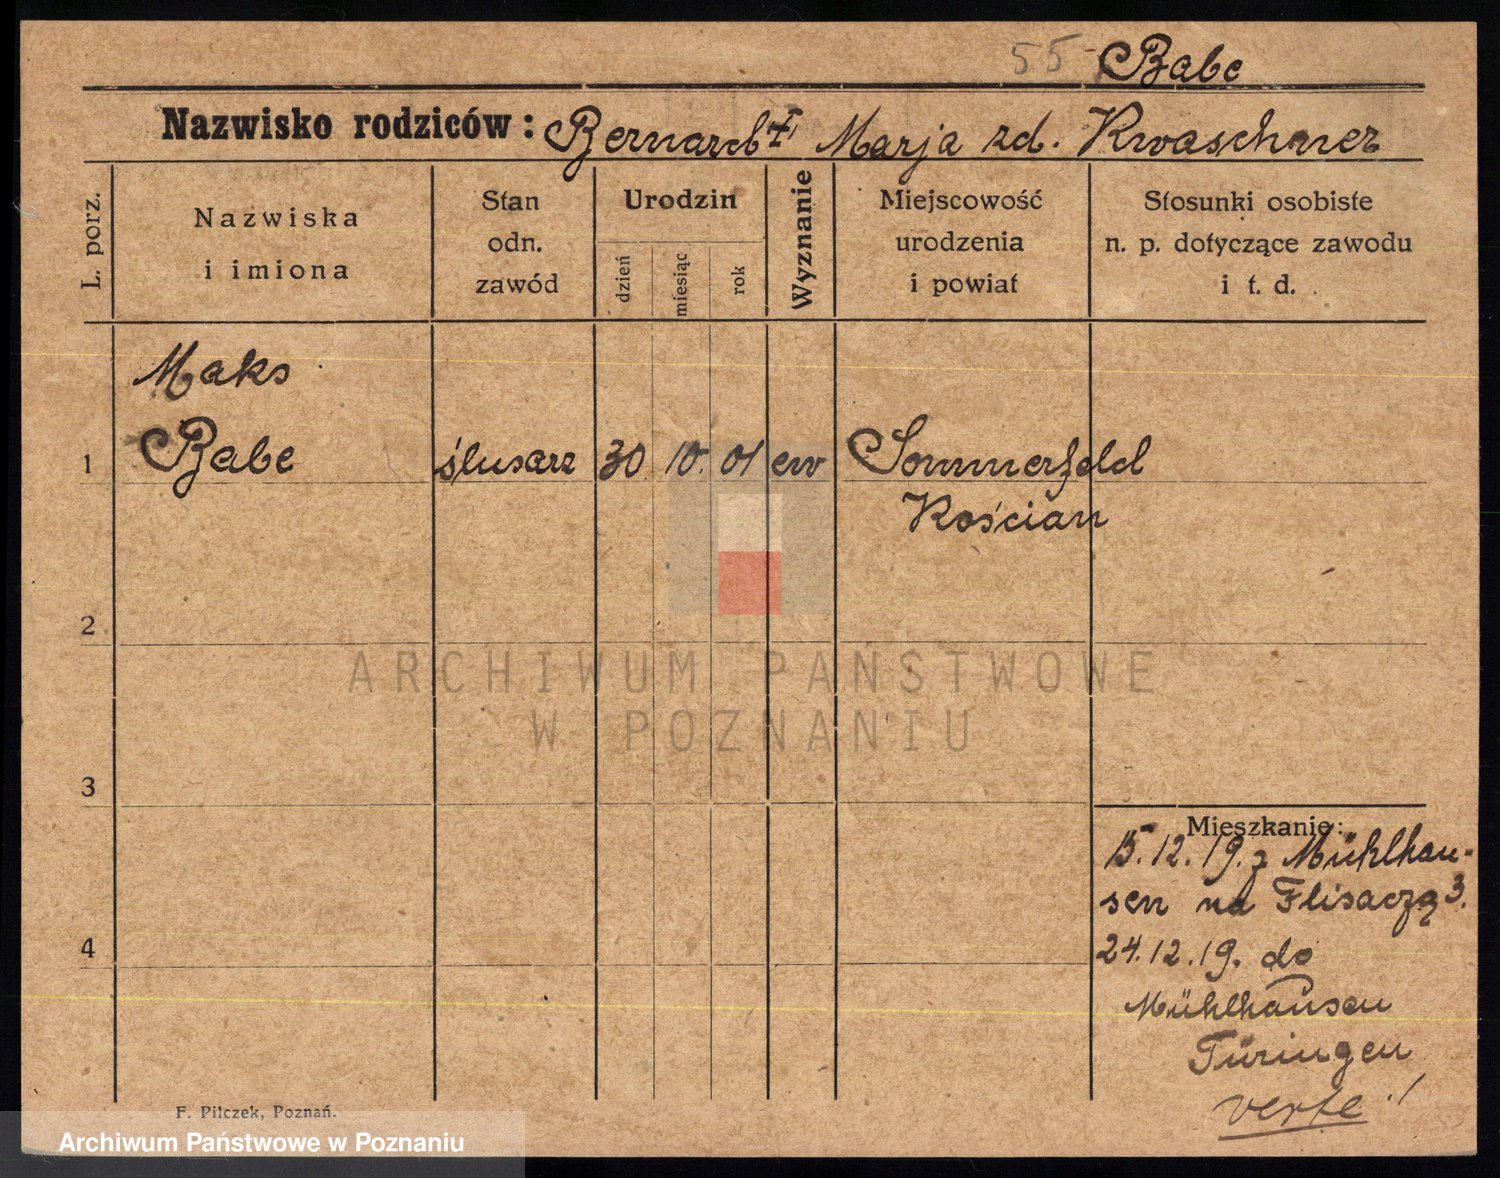 55 Babe
Nazwisko rodziców: Bernard † Marja zd. Kwaschner
L. porz.
Nazwiska
i imiona
Stan
odn.
zawód
Urodzin
dzień
miesiąc
rok
Wyznanie
Miejscowość
urodzenia
i powiat
Stosunki osobiste
n. p. dotyczące zawodu
i t. d.
Maks
1 Babe ślusarz 30 10. 01 ew Sommerfeld
Kościan
2
ARCHIWUM PAŃSTWOWE
W POZNANIU
3
Mieszkanie:
15.12.19. z Mühlhau-
sen na Flisaczą 3.
4
24.12.19. do
Mühlhausen
Türingen
verte!
F. Pilczek, Poznań.
Archiwum Państwowe w Poznaniu